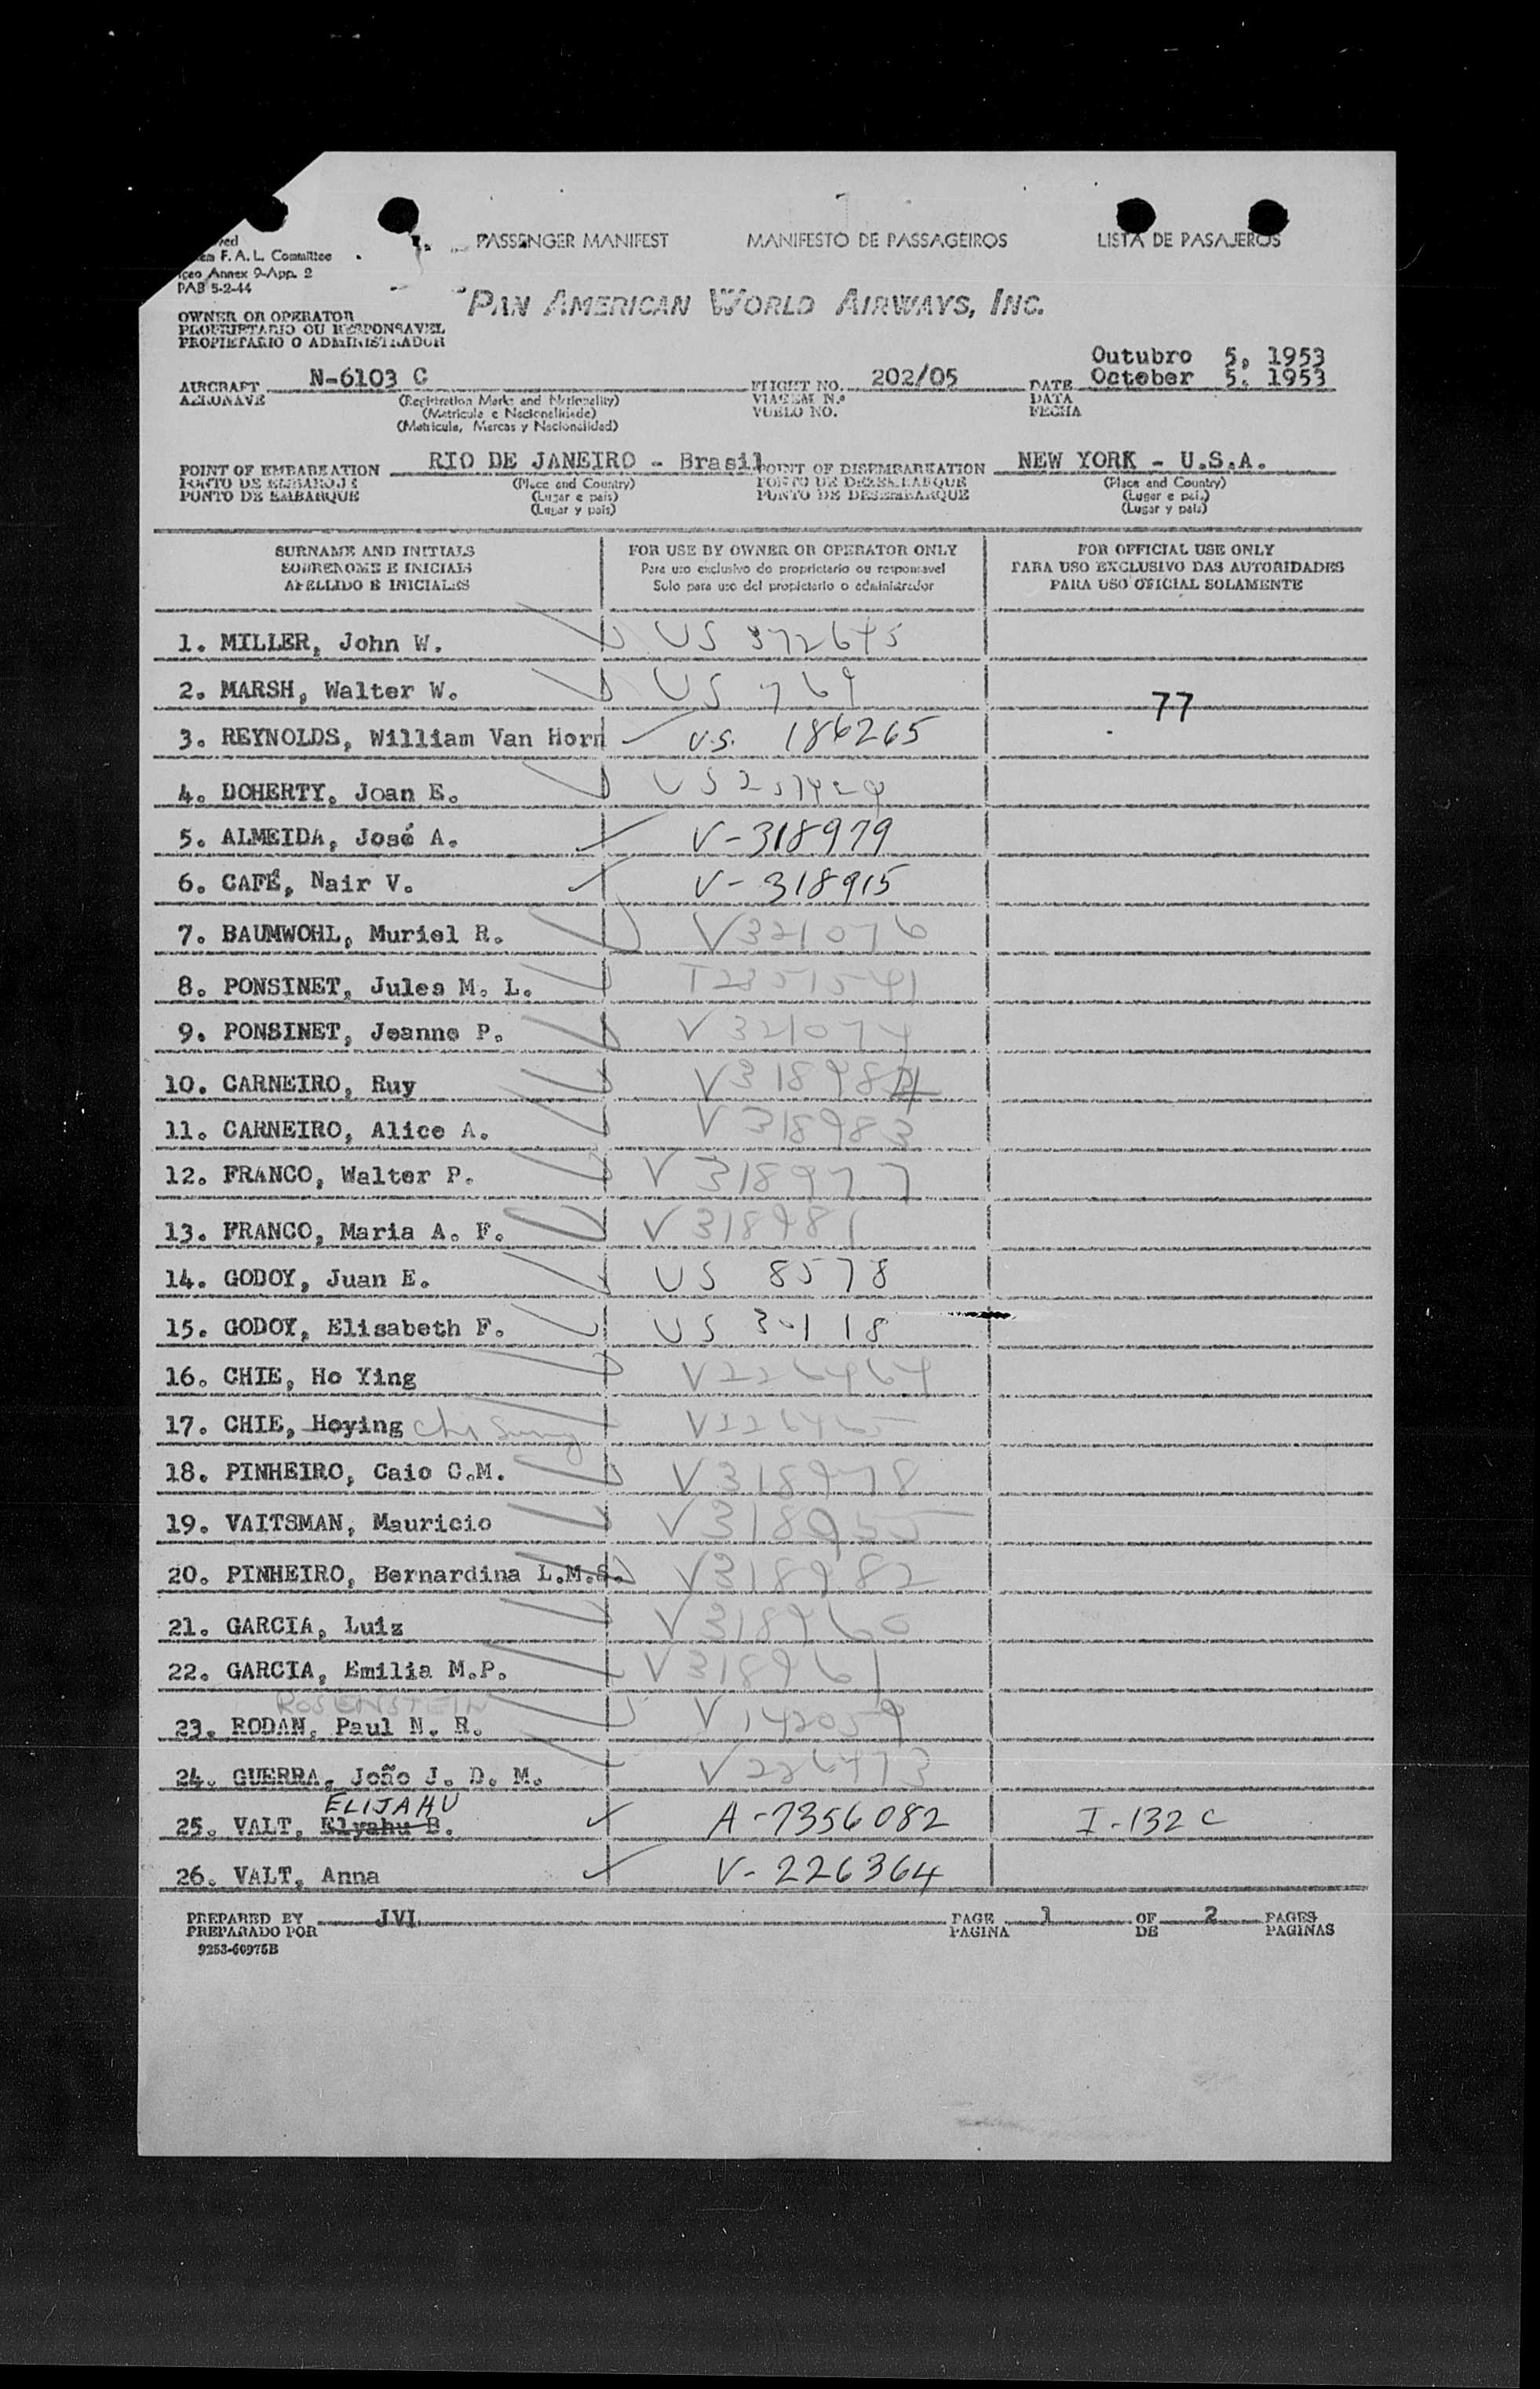 PASSENGER MANIFEST MANIFESTO DE PASSAGEIROS LISTA DE PASAJEROS
F. A. L. Committee
Annex 9-App. 2
PAB 5-2-44
PAN AMERICAN WORLD AIRWAYS, INC.
OWNER OR OPERATOR
PROPRIETARIO OU RESPONSAVEL
PROPIETARIO O ADMINISTRADOR
Outubro 5, 1953
AIRCRAFT N-6103 C FLIGHT NO. 202/05 DATE October 5. 1953
AERONAVE (Registration Marks and Nationality) VIAGEM N.º DATA
(Matricula e Nacionalidade) VUELO NO. FECHA
(Matricula, Marcas y Nacionalidad)
POINT OF EMBARKATION RIO DE JANEIRO - Brasil POINT OF DISEMBARKATION NEW YORK - U.S.A.
PONTO DE EMBARQUE (Place and Country) PONTO DE DESEMBARQUE (Place and Country)
PUNTO DE EMBARQUE (Lugar e pais) PUNTO DE DESEMBARQUE (Lugar e pais)
(Lugar y pais) (Lugar y pais)
SURNAME AND INITIALS FOR USE BY OWNER OR OPERATOR ONLY FOR OFFICIAL USE ONLY
SOBRENOME E INICIAIS Para uso exclusivo do proprietario ou responsavel PARA USO EXCLUSIVO DAS AUTORIDADES
APELLIDO E INICIALES Solo para uso del propietario o administrador PARA USO OFICIAL SOLAMENTE
1. MILLER, John W. US 372645
2. MARSH, Walter W. US 769
77
3. REYNOLDS, William Van Horn U.S. 186265
4. DOHERTY, Joan E. US
5. ALMEIDA, José A. V-318979
6. CAFÉ, Nair V. V-318915
7. BAUMWOHL, Muriel R. V321076
8. PONSINET, Jules M. L. T2351541
9. PONSINET, Jeanne P. V321074
10. CARNEIRO, Ruy V318984
11. CARNEIRO, Alice A. V 318983
12. FRANCO, Walter P. V 318977
13. FRANCO, Maria A. F. V 318981
14. GODOY, Juan E. US 8578
15. GODOY, Elisabeth F. US
16. CHIE, Ho Ying V226464
17. CHIE, Hoying Chi Sung V226465
18. PINHEIRO, Caio C.M. V318978
19. VAITSMAN, Mauricio V318955
20. PINHEIRO, Bernardina L.M.S. V318982
21. GARCIA, Luiz V318960
22. GARCIA, Emilia M.P. V318961
ROSENSTEIN
23. RODAN, Paul N. R. V142059
24. GUERRA, João J. D. M. V226473
ELIJAHU
25. VALT, Elyahu B. A-7356082 I-132 C
26. VALT, Anna V-226364
PREPARED BY JVI PAGE 1 OF 2 PAGES
PREPARADO POR PAGINA DE PAGINAS
9253-60975B